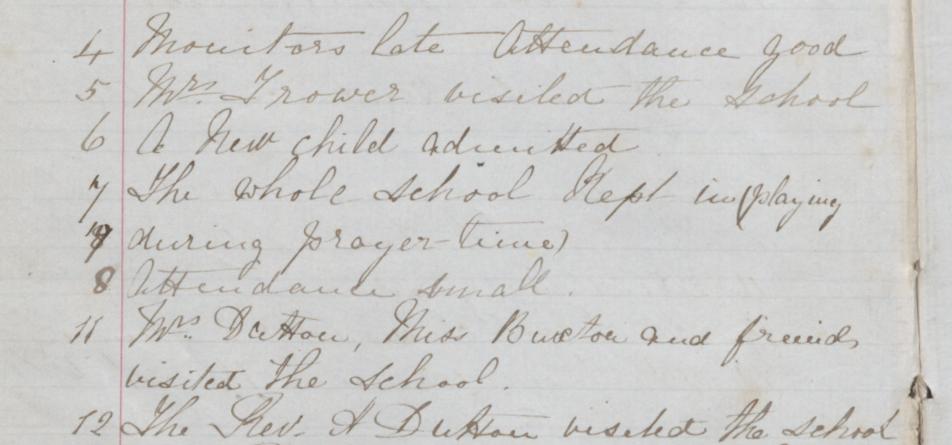 4 Monitors late Attendance good
5 Mrs. Trower visited the School
6 A New child admitted
7 The whole school Kept in (playing
during prayer-time)
8 Attendance small.
11 Mrs. Dutton, Miss Buxton and friends
visited the school.
12 The Rev. A Dutton visited the school